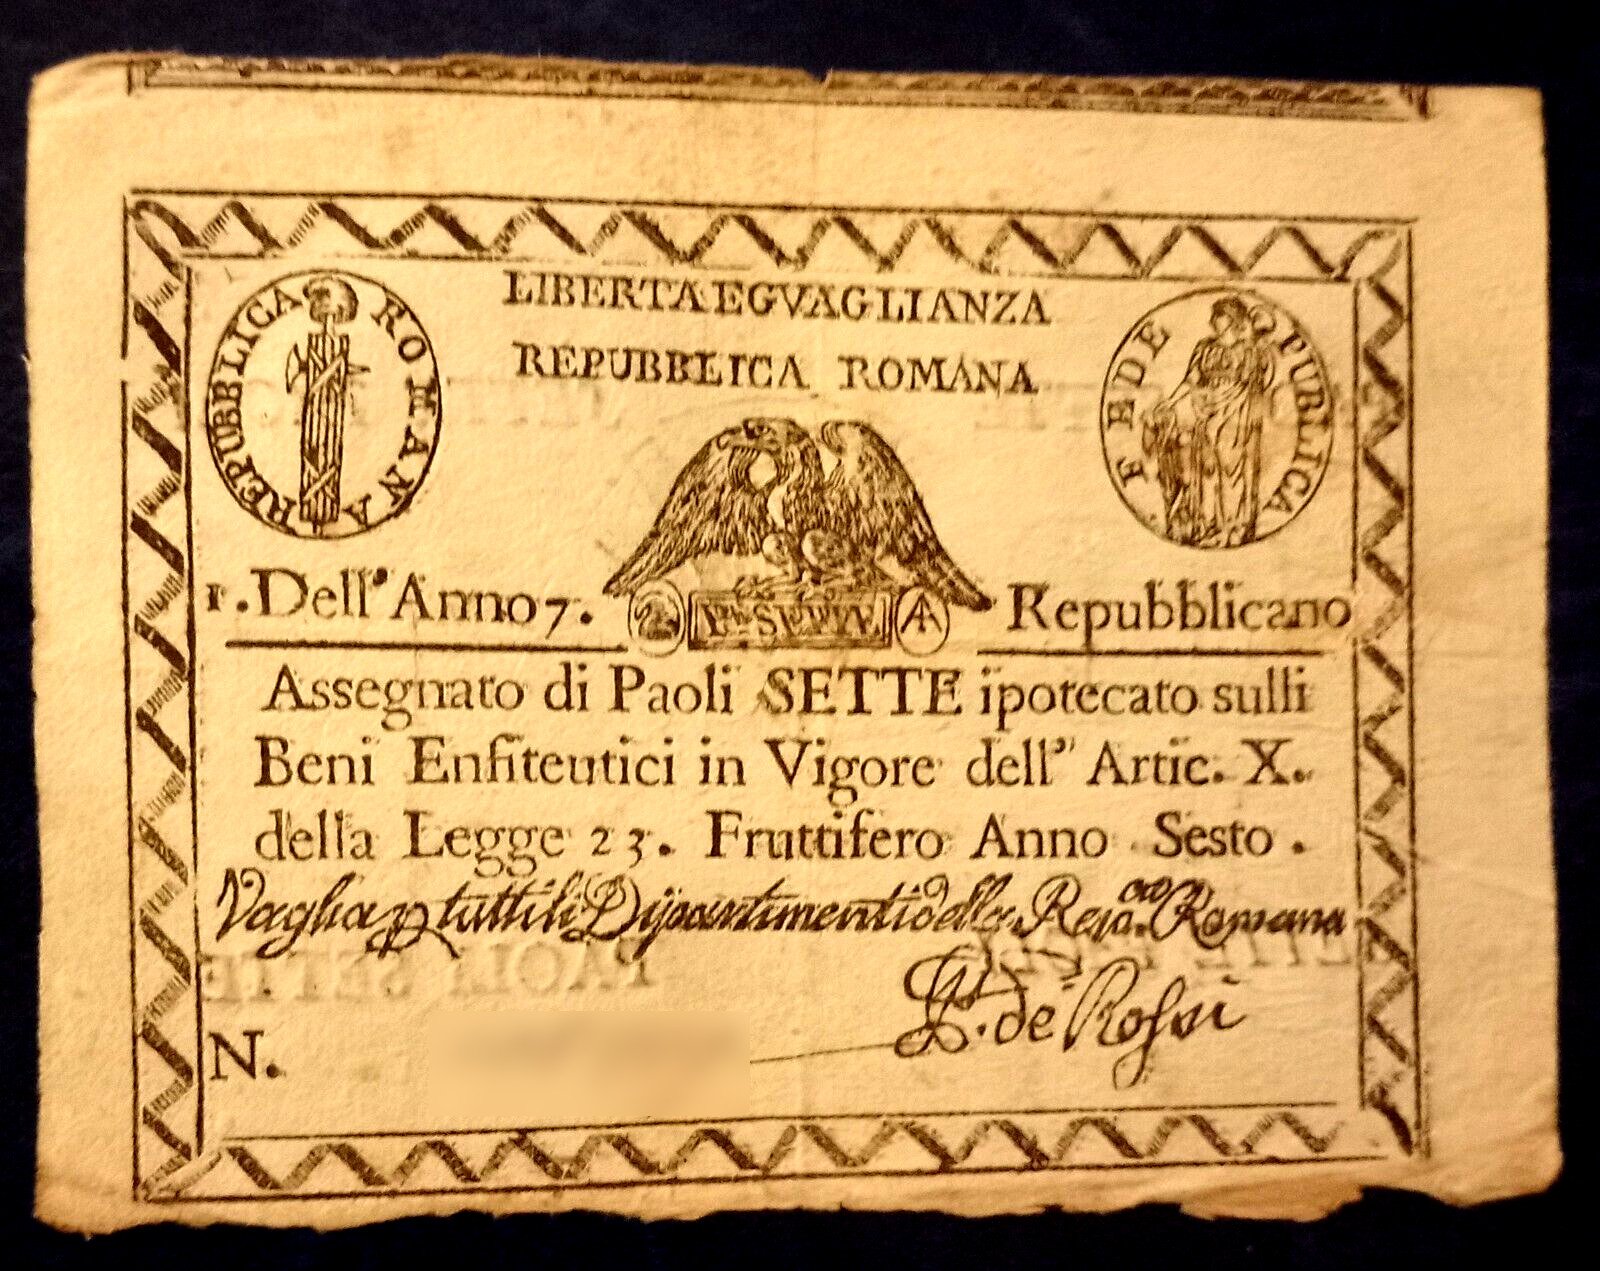 LIBERTA EGVAGLIANZA
REPUBBLICA ROMANA
REPUBBLICA ROMANA
FEDE PUBLICA
1. Dell' Anno 7. Repubblicano
Assegnato di Paoli SETTE ipotecato sulli
Beni Enfiteutici in Vigore dell' Artic. X.
della Legge 23. Fruttifero Anno Sesto.
Vaglia p tutti li Dipartimenti della Rep.ca Romana
de Rossi
N.
PAOLI SETTE